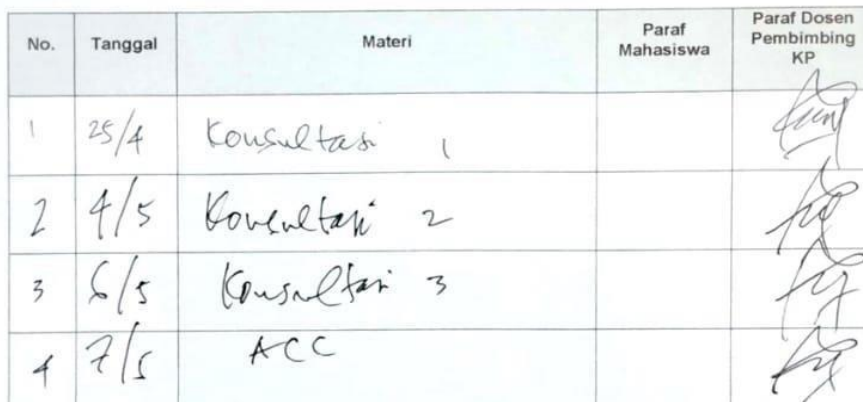 No. Tanggal Materi Paraf Mahasiswa Paraf Dosen Pembimbing KP
1 25/4 Konsultasi 1
2 4/5 Konsultasi 2
3 6/5 Konsultasi 3
4 7/5 ACC